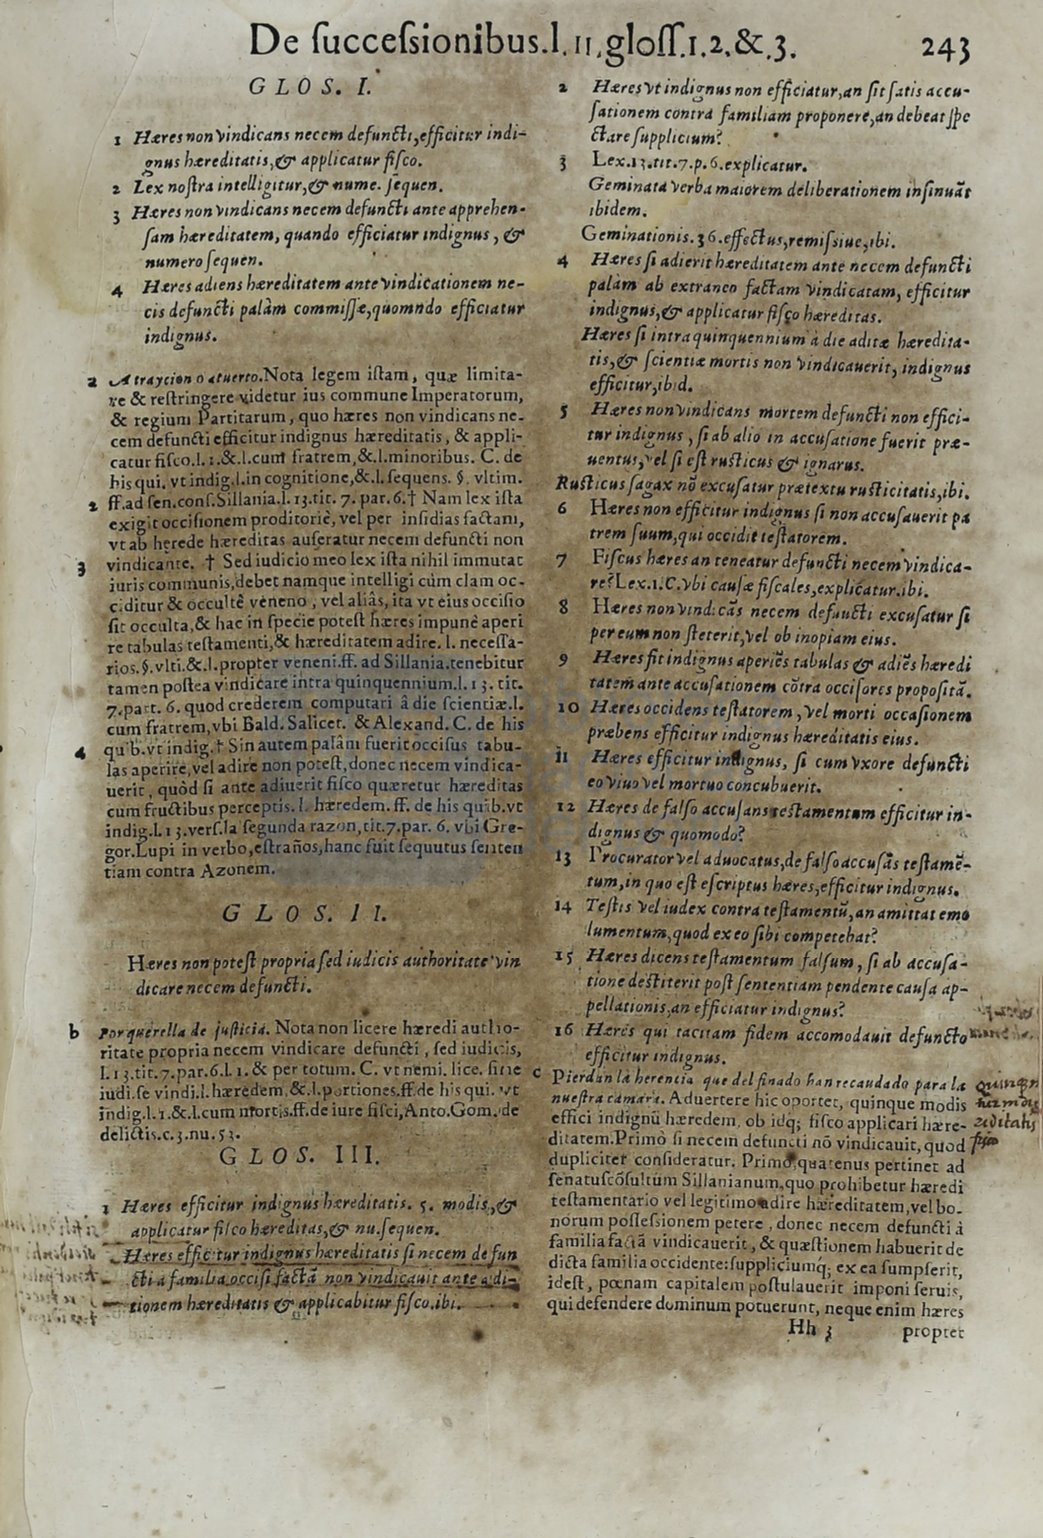 De ſucceſsionibus.l.11.gloſſ.1.2.&.3. 243
GLOS. I.
1 Hæres non vindicans necem defuncti, efficitur indi-
gnus hæreditatis,& applicatur fiſco.
2 Lex noſtra intelligitur,& nume. ſequen.
3 Hæres non vindicans necem defuncti ante apprehen-
ſam hæreditatem, quando efficiatur indignus, &
numero ſequen.
4 Hæres adiens hæreditatem ante vindicationem ne-
cis defuncti palàm commiſſæ,quomndo efficiatur
indignus.
a A traycion o atuerto.Nota legem iſtam, quæ limita-
re & reſtringere videtur ius commune Imperatorum,
& regium Partitarum, quo hæres non vindicans ne-
cem defuncti efficitur indignus hæreditatis, & appli-
catur fiſco.l.1.&.l.cum fratrem,&.l.minoribus. C. de
his qui. vt indig.l.in cognitione,&.l.ſequens. §. vltim.
2 ff.ad ſen.conſ.Sillania.l.13.tit. 7. par.6.† Nam lex iſta
exigit occiſionem proditoriè, vel per inſidias factam,
vt ab herede hæreditas auferatur necem defuncti non
3 vindicante. † Sed iudicio meo lex iſta nihil immutat
iuris communis,debet namque intelligi cùm clam oc-
ciditur & occultê vèneno, vel aliâs, ita vt eius occiſio
ſit occulta,& hac in ſpecie poteſt hæres impunè aperi
re tabulas teſtamenti,& hæreditatem adire. l. neceſſa-
rios.§.vlti.&.l.propter veneni.ff. ad Sillania.tenebitur
tamen poſtea vindicare intra quinquennium.l.13. tit.
7.part. 6. quod crederem computari â die ſcientiæ.l.
cum fratrem,vbi Bald. Salicet. & Alexand. C. de his
4 quib.vt indig.† Sin autem palâm fuerit occiſus tabu-
las aperire,vel adire non poteſt,donec necem vindica-
uerit, quòd ſi ante adiuerit fiſco quæretur hæreditas
cum fructibus perceptis.l. hæredem. ff. de his quib.vt
indig.l.13.verſ.la ſegunda razon,tit.7.par. 6. vbi Gre-
gor.Lupi in verbo,eſtraños,hanc fuit ſequutus ſenten
tiam contra Azonem.
GLOS. II.
Hæres non poteſt propria ſed iudicis authoritate vin
dicare necem defuncti.
b Por querella de juſticia. Nota non licere hæredi autho-
ritate propria necem vindicare defuncti, ſed iudicis,
l.13.tit.7.par.6.l.1.& per totum. C. vt nemi. lice. ſine
iudi.ſe vindi.l.hæredem.&.l.portiones.ff.de his qui. vt
indig.l.1.&.l.cum mortis.ff.de iure fiſci,Anto.Gom. de
delictis.c.3.nu.53.
GLOS. III.
1 Hæres efficitur indignus hæreditatis. 5. modis,&
applicatur fiſco hæreditas,& nu.ſequen.
Hæres efficitur indignus hæreditatis ſi necem defun
cti à familia occiſi factā non vindicauit ante adi-
tionem hæreditatis & applicabitur fiſco.ibi.
2 Hæres vt indignus non efficiatur,an ſit ſatis accu-
ſationem contra familiam proponere,an debeat ſpe
ctare ſupplicium?
3 Lex.13.tit.7.p.6.explicatur.
Geminata verba maiorem deliberationem inſinuāt
ibidem.
Geminationis.36.effectus,remiſsiue,ibi.
4 Hæres ſi adierit hæreditatem ante necem defuncti
palàm ab extraneo factam vindicatam, efficitur
indignus,& applicatur fiſco hæreditas.
Hæres ſi intra quinquennium à die aditæ hæredita-
tis,& ſcientiæ mortis non vindicauerit, indignus
efficitur,ibid.
5 Hæres non vindicans mortem defuncti non effici-
tur indignus, ſi ab alio in accuſatione fuerit præ-
uentus,vel ſi eſt ruſticus & ignarus.
Ruſticus ſagax nō excuſatur prætextu ruſticitatis,ibi.
6 Hæres non efficitur indignus ſi non accuſauerit pa
trem ſuum,qui occidit teſtatorem.
7 Fiſcus hæres an teneatur defuncti necem vindica-
re?Lex.1.C.vbi cauſæ fiſcales,explicatur.ibi.
8 Hæres non vindicās necem defuncti excuſatur ſi
per eum non ſteterit,vel ob inopiam eius.
9 Hæres fit indignus aperiēs tabulas & adiēs hæredi
tatem ante accuſationem cōtra occiſores propoſitā.
10 Hæres occidens teſtatorem, vel morti occaſionem
præbens efficitur indignus hæreditatis eius.
11 Hæres efficitur indignus, ſi cum vxore defuncti
eo viuo vel mortuo concubuerit.
12 Hæres de falſo accuſans teſtamentum efficitur in-
dignus & quomodo?
13 Procurator vel aduocatus,de falſo accuſās teſtamē-
tum,in quo eſt eſcriptus hæres,efficitur indignus.
14 Teſtis vel iudex contra teſtamentū,an amittat emo
lumentum,quod ex eo ſibi competebat?
15 Hæres dicens teſtamentum falſum, ſi ab accuſa-
tione deſtiterit poſt ſententiam pendente cauſa ap-
pellationis,an efficiatur indignus?
16 Hæres qui tacitam fidem accomodauit defuncto
efficitur indignus.
c Pierdan la herencia que del finado han recaudado para la
nueſtra camara. Aduertere hic oportet, quinque modis
effici indignū hæredem, ob idq; fiſco applicari hære-
ditatem.Primò ſi necem defuncti nō vindicauit, quod
dupliciter conſideratur. Primò,quatenus pertinet ad
ſenatuſcōſultum Sillanianum,quo prohibetur hæredi
teſtamentario vel legitimo adire hæreditatem,vel bo-
norum poſſeſsionem petere, donec necem defuncti à
familia factā vindicauerit, & quæſtionem habuerit de
dicta familia occidente:ſuppliciumq; ex ea ſumpſerit,
ideſt, pœnam capitalem poſtulauerit imponi ſeruis,
qui defendere dominum potuerunt, neque enim hæres
Hh 3 propter